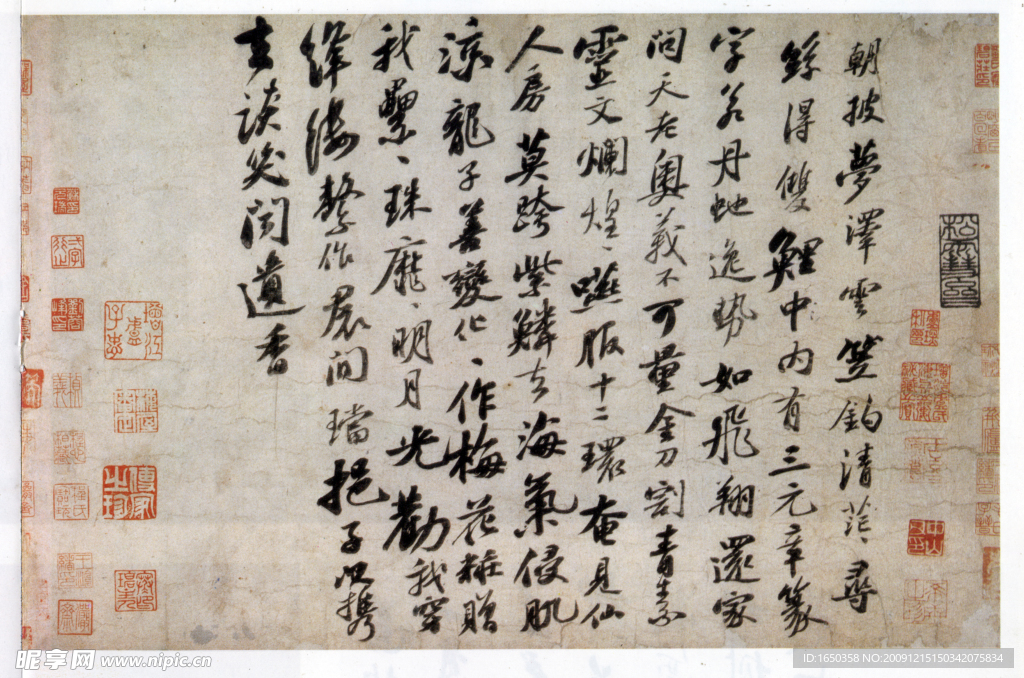 朝披夢澤雲笠釣清茫〻尋
絲得雙鯉中內有三元章篆
字若丹蛇逸勢如飛翔還家
問天老奧義不可量金刀割青素
靈文爛煌〻嚥服十二環奄見仙
人房莫跨紫鱗去海氣侵肌
涼龍子善變化〻作梅花粧贈
我纍〻珠靡〻明月光勸我穿
絳縷繫作裙間璫挹子以攜
去談笑聞遺香
傳家之珍
昵享网 www.nipic.cn
ID:1650358 NO:20091215150342075834